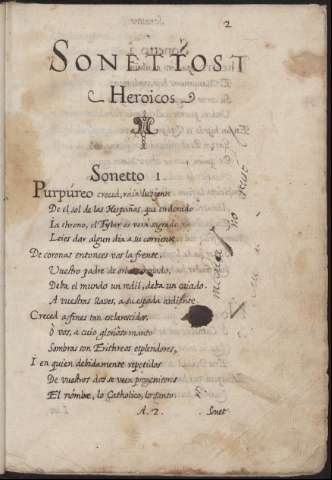 2
SONETTOS I
Heroicos
Sonetto 1.
Purpúreo creced, raio luziente
De el sol de las Hespañas, que en dorado
Throno, el Tyber os verá sagrado
Leies dar algun dia a su corriente.
De coronas entonces vos la frente,
Vuestro padre de orbes
Deba el mundo un redil, deba un caiado.
A vuestras llaves, a su espada ardiente.
Creced a fines tan esclarecidos,
ó vos, a cuio glorioso manto
Sombras son Erithreos esplendores,
I en quien debidamente repetidos
De vuestros dos se veen progenitores
El nombre, lo Catholico, lo santo.
A. 2. Sonet-